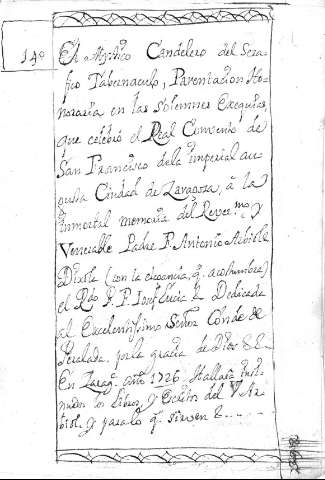 14º
El Mystico Candelero del Sera-
fico Tabernaculo, Parentacion Ho-
noraria en las solemnes Exequias,
que celebró el Real Convento de
San Francisco dela imperial au-
gusta Ciudad de Zaragoza, á la
inmortal memoria del Rever.mo y
Venerable Padre F. Antonio Arbiol
Dixola (con la eloquencia, q. acostumbra)
el Rdo P. F. Dedicada
al Excelentissimo Señor Conde de
Peralada, por la gracia de Dios &&
En Zarag. año 1726. Hallará inst-
los libros, y Escritos del V. Ar-
biol, y para lo q. sirven &